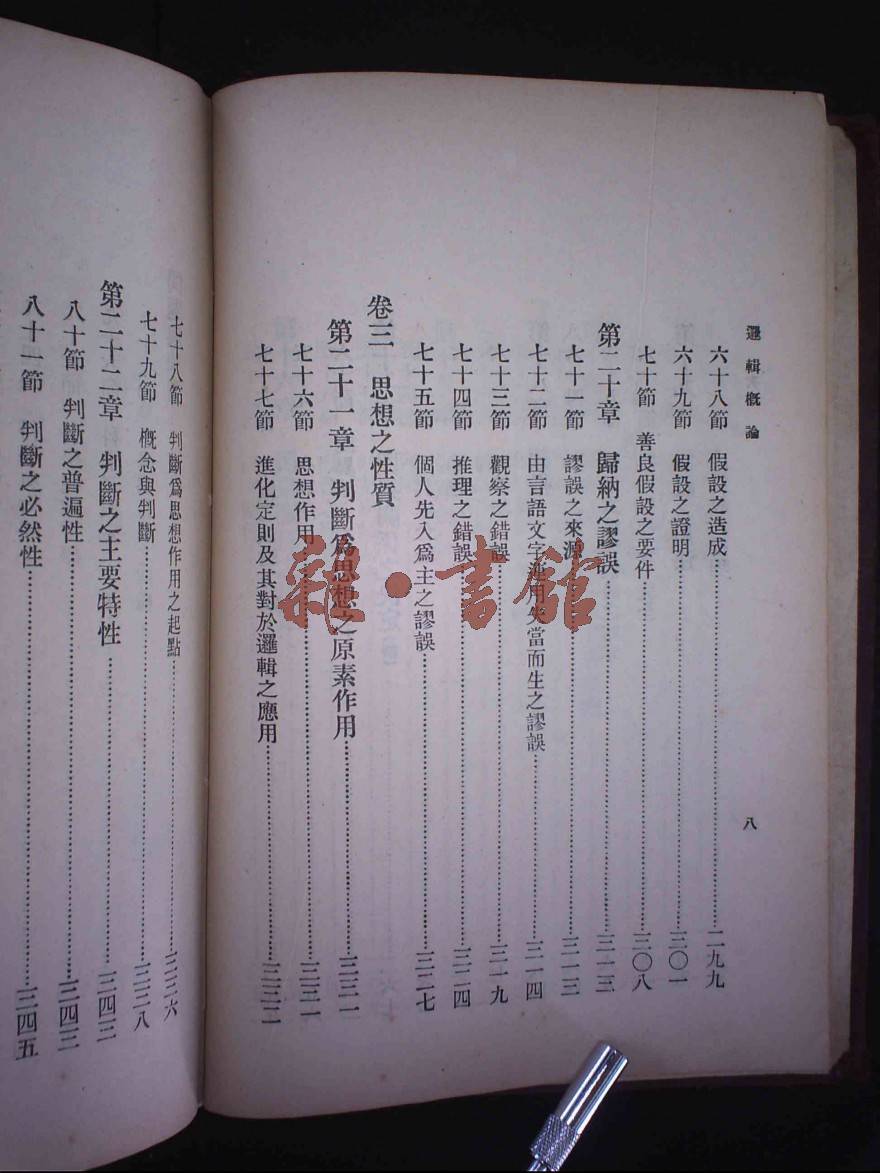 邏輯概論
八
六十八節 假設之造成 二九九
六十九節 假設之證明 三〇一
七十節 善良假設之要件 三〇八
第二十章 歸納之謬誤 三一三
七十一節 謬誤之來源 三一三
七十二節 由言語文字 用 當而生之謬誤 三一四
七十三節 觀察之錯誤 三一九
七十四節 推理之錯誤 三二四
七十五節 個人先入爲主之謬誤 三二七
卷三 思想之性質
第二十一章 判斷爲思想之原素作用 三三一
七十六節 思想作用 三三一
七十七節 進化定則及其對於邏輯之應用 三三二
七十八節 判斷爲思想作用之起點 三三六
七十九節 概念與判斷 三三八
第二十二章 判斷之主要特性 三四三
八十節 判斷之普遍性 三四三
八十一節 判斷之必然性 三四五
雜·書館